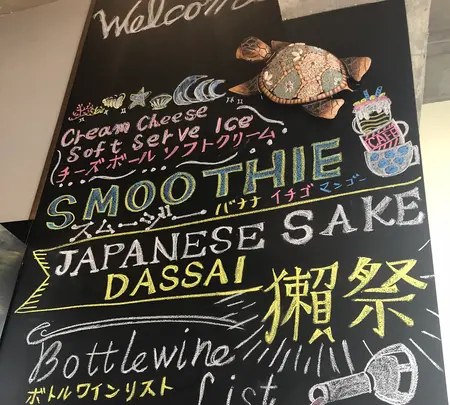 Welcome
Cream Cheese
Soft Serve Ice
チーズボール ソフトクリーム
SMOOTHIE
スムージー バナナ イチゴ マンゴー
CAFE
JAPANESE SAKE
DASSAI 獺祭
Bottlewine
ボトルワインリスト List